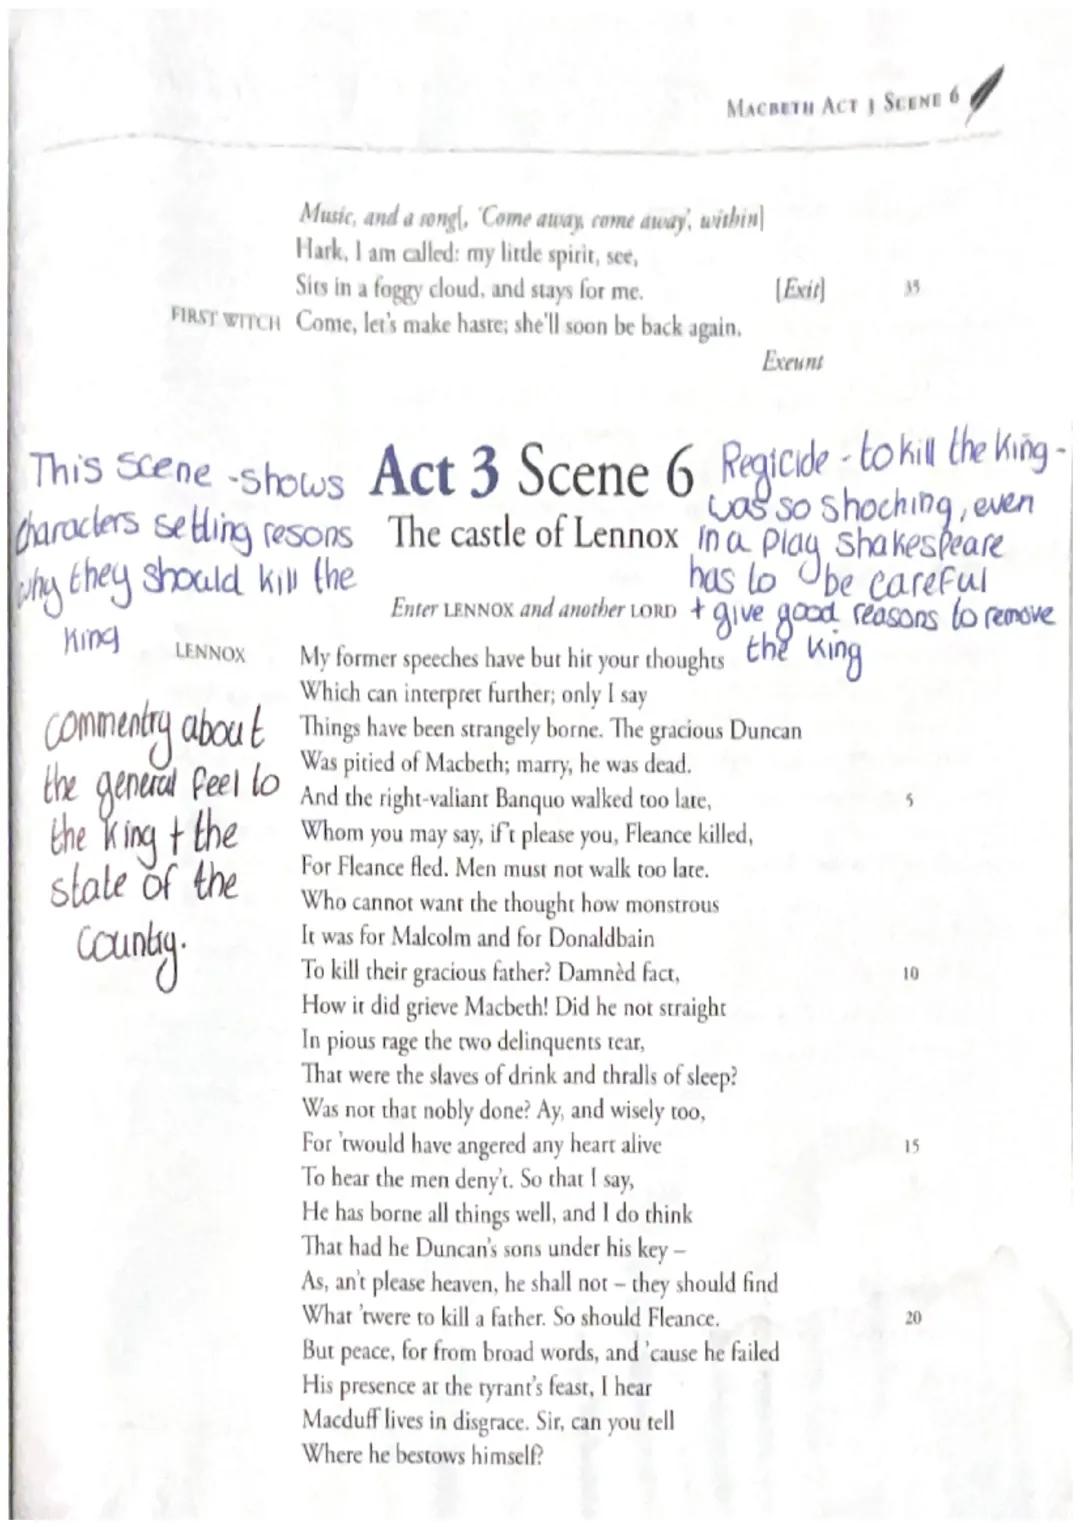 MACBETH ACT 3 SCENE 6
Music, and a song[, 'Come away, come away', within]
Hark, I am called: my little spirit, see,
Sits in a foggy cloud, and stays for me. [Exit] 35
FIRST WITCH Come, let's make haste; she'll soon be back again.
Exeunt
This scene - shows
characters setting resons
why they should kill the
King
Act 3 Scene 6
The castle of Lennox
Regicide - to kill the King -
was so shoching, even
in a play shakespeare
has to be careful
+ give good reasons to remove
the King
Enter LENNOX and another LORD
LENNOX My former speeches have but hit your thoughts
Which can interpret further; only I say
Things have been strangely borne. The gracious Duncan
Was pitied of Macbeth; marry, he was dead.
And the right-valiant Banquo walked too late, 5
Whom you may say, if't please you, Fleance killed,
For Fleance fled. Men must not walk too late.
Who cannot want the thought how monstrous
It was for Malcolm and for Donaldbain
To kill their gracious father? Damnèd fact, 10
How it did grieve Macbeth! Did he not straight
In pious rage the two delinquents tear,
That were the slaves of drink and thralls of sleep?
Was not that nobly done? Ay, and wisely too,
For 'twould have angered any heart alive 15
To hear the men deny't. So that I say,
He has borne all things well, and I do think
That had he Duncan's sons under his key –
As, an't please heaven, he shall not – they should find
What 'twere to kill a father. So should Fleance. 20
But peace, for from broad words, and 'cause he failed
His presence at the tyrant's feast, I hear
Macduff lives in disgrace. Sir, can you tell
Where he bestows himself?
commentry about
the general feel to
the King + the
state of the
Country.